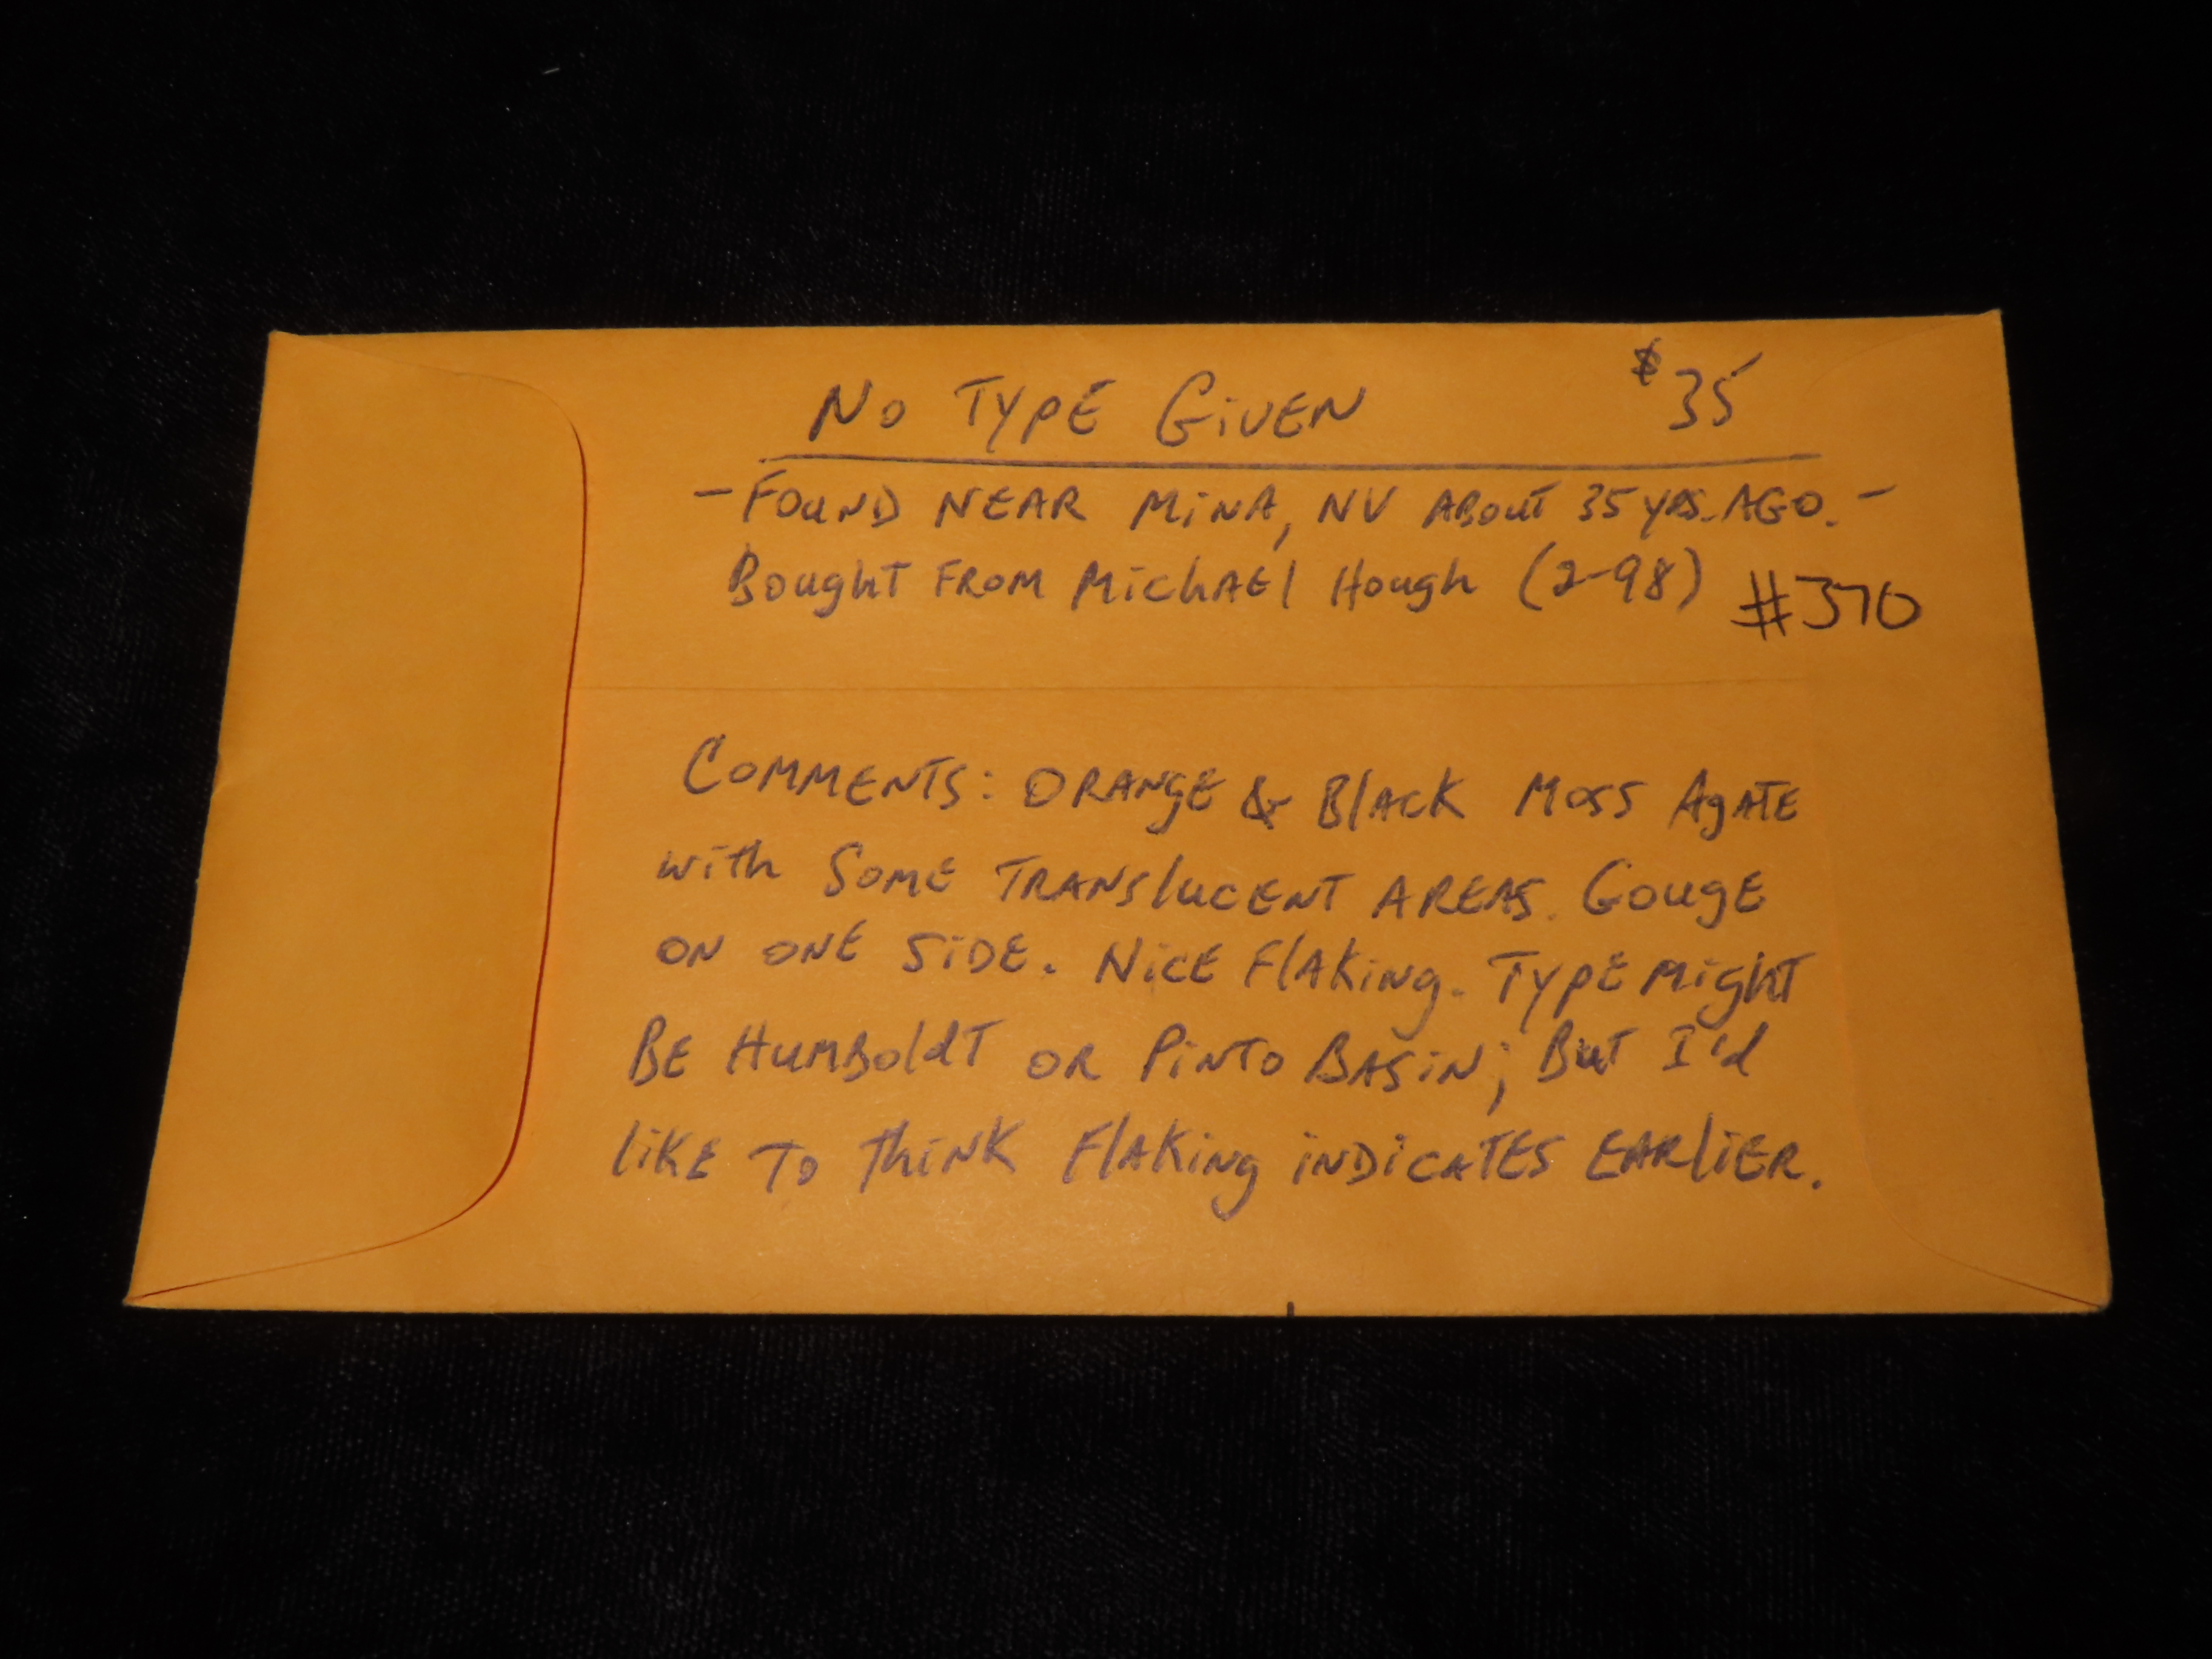 No Type Given $35
- Found near Mina, NV about 35 yrs. ago. -
Bought from Michael Hough (2-98) #370
Comments: Orange & Black Moss Agate
with some translucent areas. Gouge
on one side. Nice flaking. Type might
be Humboldt or Pinto Basin; but I'd
like to think flaking indicates earlier.